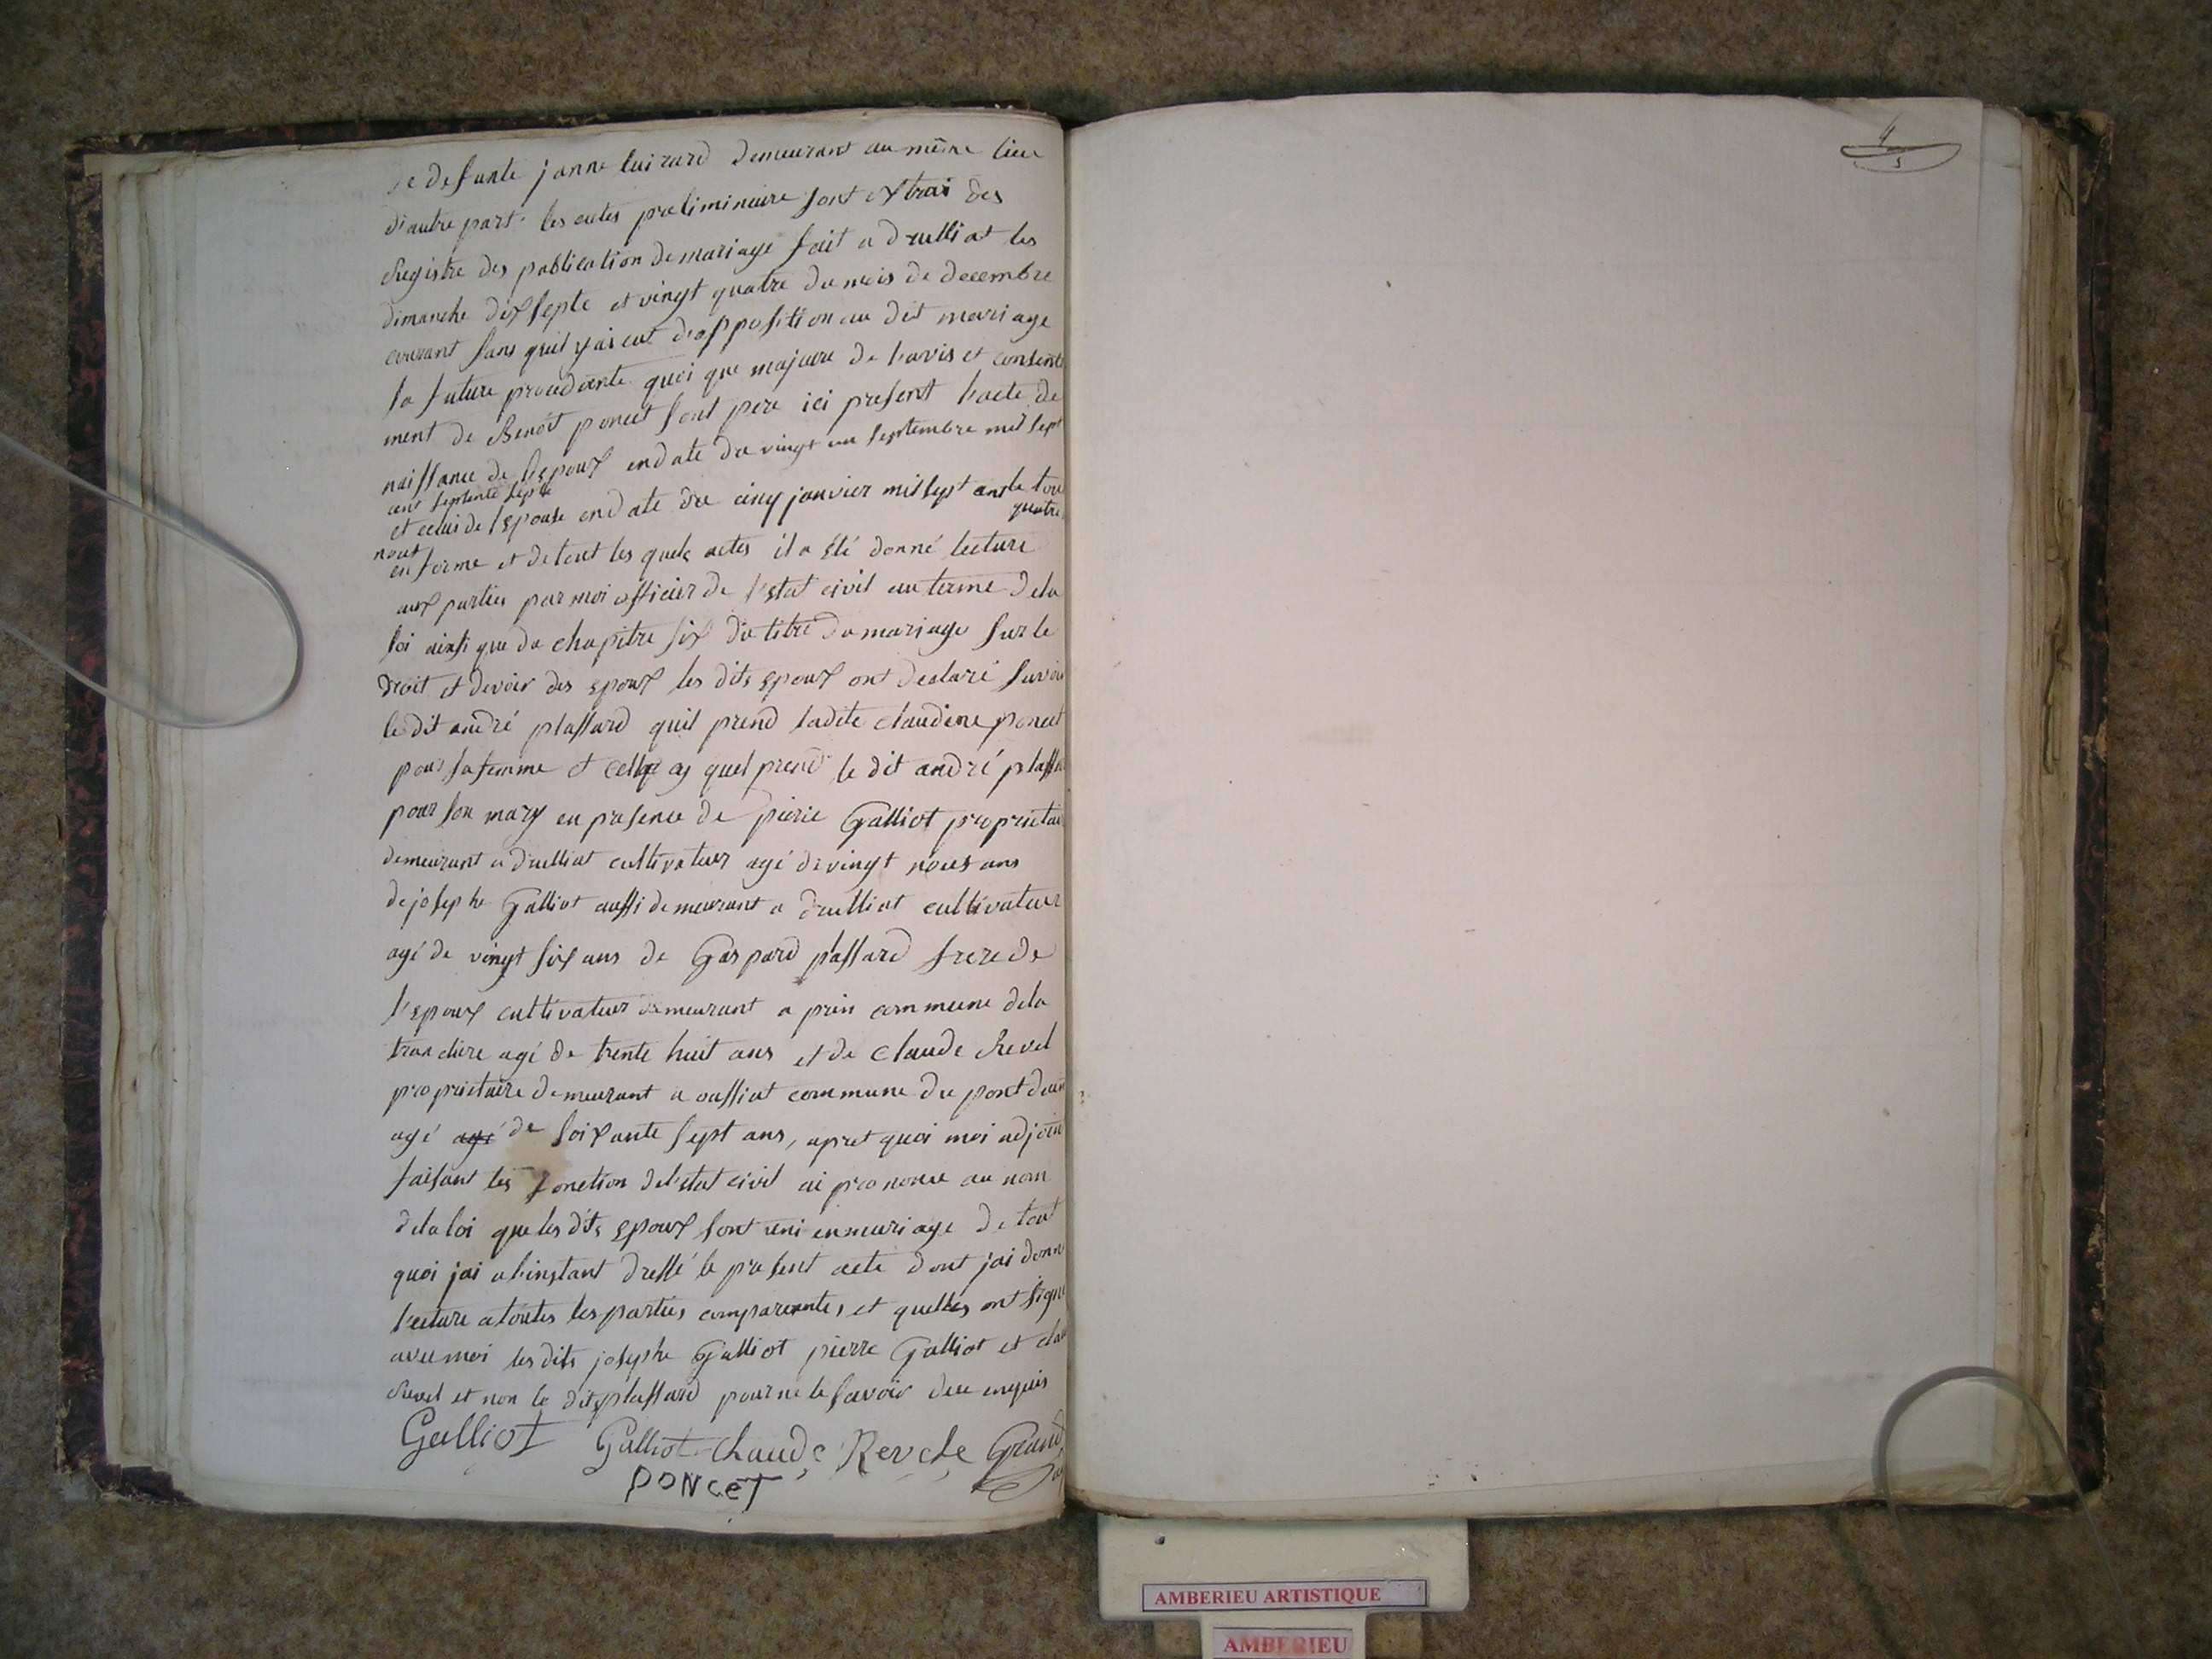 de defunte janne luirard demeurant au même lieu
d'autre part les actes preliminaire sont extrai des
Registre des publication de mariage fait a druilliat les
dimanche dix septe et vingt quatre du mois de decembre
courant sans quil y ai eut d'opposition au dit mariage
la future procedante quoi que majeure de l'avis et consente
ment de Benoit poncet sont pere ici present l'acte de
naissance de l'epoux en date du vingt un septembre mil sept
cent septente septe
et celui de l'epouse en date du cinq janvier mil sept cent
quatre
en forme et de tout les quels actes il a été donné lecture
aux parties par moi officier de l'etat civil au terme de la
loi ainsi que du chapitre six du titre du mariage sur le
droit et devoir des epoux les dits epoux ont declaré savoir
le dit andré plassard quil prend ladite claudine poncet
pour sa femme et celle cy quel prend le dit andré plassa
pour son mary en presence de pierre Galliot proprietai
demeurant a druilliat cultivateur agé de vingt neuf ans
de josephe Galliot aussi demeurant a druilliat cultivateur
agé de vingt six ans de Gaspard plassard frere de
l'epoux cultivateur demeurant a prin commune de la
tranclière agé de trente huit ans et de claude Revel
proprietaire demeurant a oussiat commune du pont dain
agé agé de soixante sept ans, apret quoi moi adjoin
faisant les fonction de l'etat civil ai prononcé au nom
de la loi que les dits epoux sont uni en mariage de tout
quoi jai a l'instant dressé le present acte dont jai donn
lecture a toutes les parties comparantes et quelles ont signé
avec moi les dits josephe Galliot pierre Galliot et clau
Revel et non le dit plassard pour ne le savoir de ce enquis
Galliot Galliot Claude Revele Grand
PONCET
4
AMBERIEU ARTISTIQUE
AMBERIEU